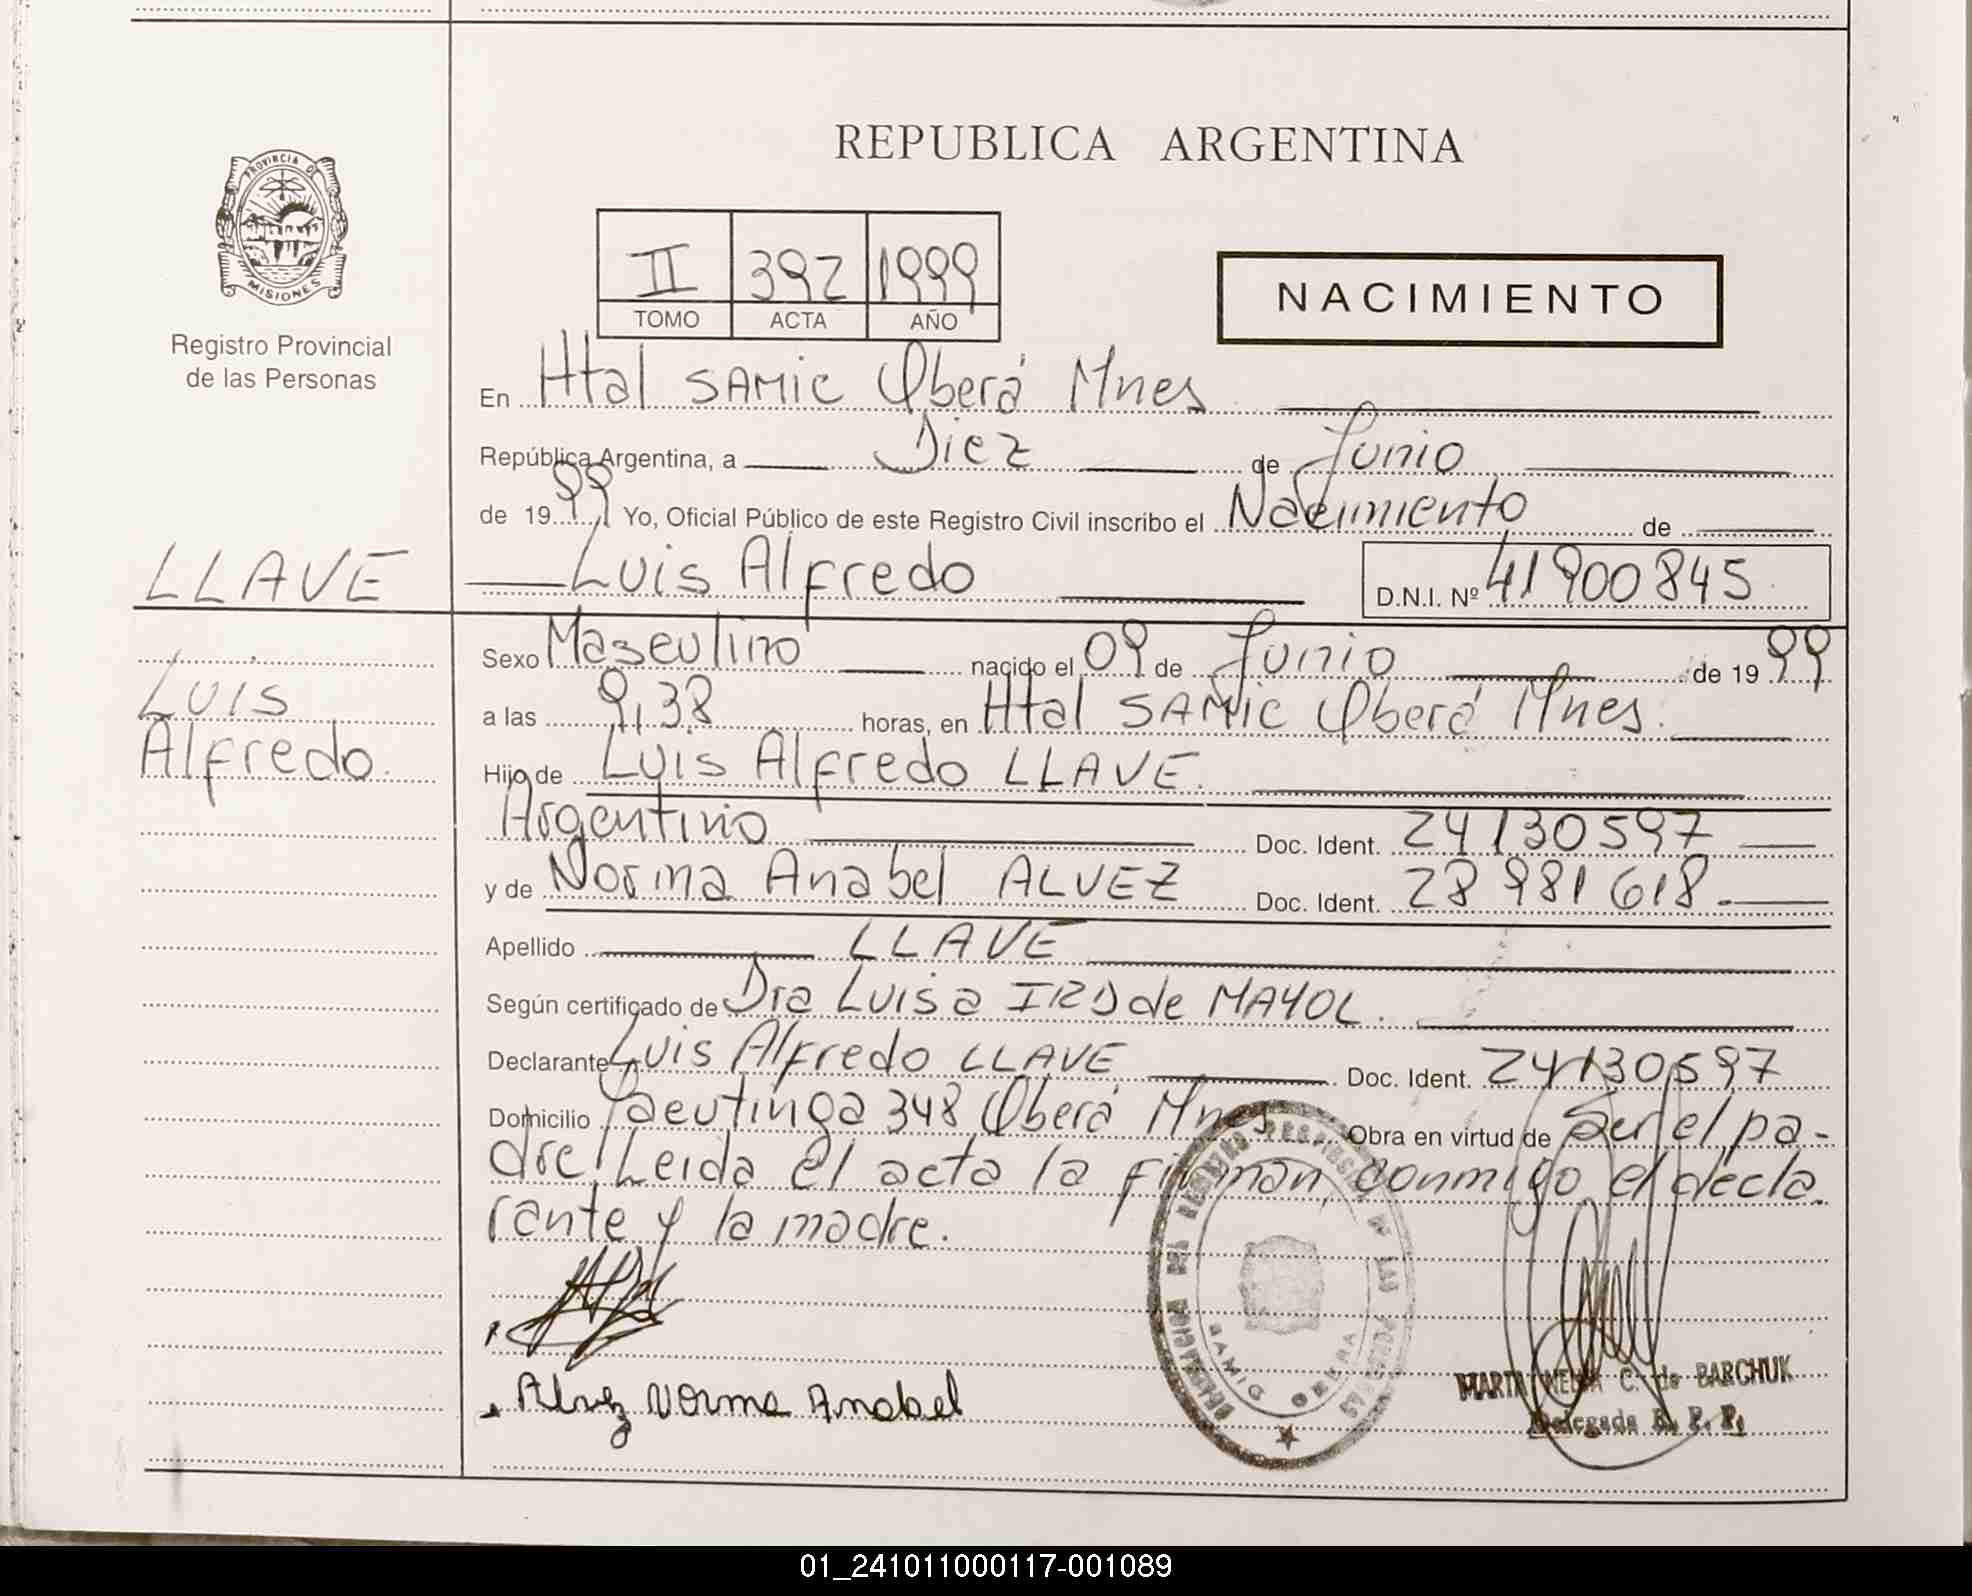 REPUBLICA ARGENTINA
PROVINCIA DE
MISIONES
Registro Provincial
de las Personas
II 392 1999
TOMO ACTA AÑO
NACIMIENTO
En Htal SAMIC Oberá Mnes
República Argentina, a Diez de Junio
de 1999 Yo, Oficial Público de este Registro Civil inscribo el Nacimiento de
LLAVE
Luis Alfredo D.N.I. Nº 41900845
Luis
Alfredo
Sexo Masculino nacido el 09 de Junio de 1999
a las 9,38 horas, en Htal SAMIC Oberá Mnes.
Hijo de Luis Alfredo LLAVE.
Argentino Doc. Ident. 24130597
y de Norma Anabel ALVEZ Doc. Ident. 28981618.
Apellido LLAVE
Según certificado de Dra Luisa IRD de MAYOL.
Declarante Luis Alfredo LLAVE Doc. Ident. 24130597
Domicilio Yacutinga 348 Oberá Mnes Obra en virtud de Ser el pa-
dre. Leida el acta la firman conmigo el decla
rante y la madre.
Alvez Norma Anabel
DELEGACION DEL REGISTRO PROVINCIAL DE LAS PERSONAS
SAMIC OBERA
MARTA NELIDA C. de BARCHUK
Delegada R. P. P.
01_241011000117-001089